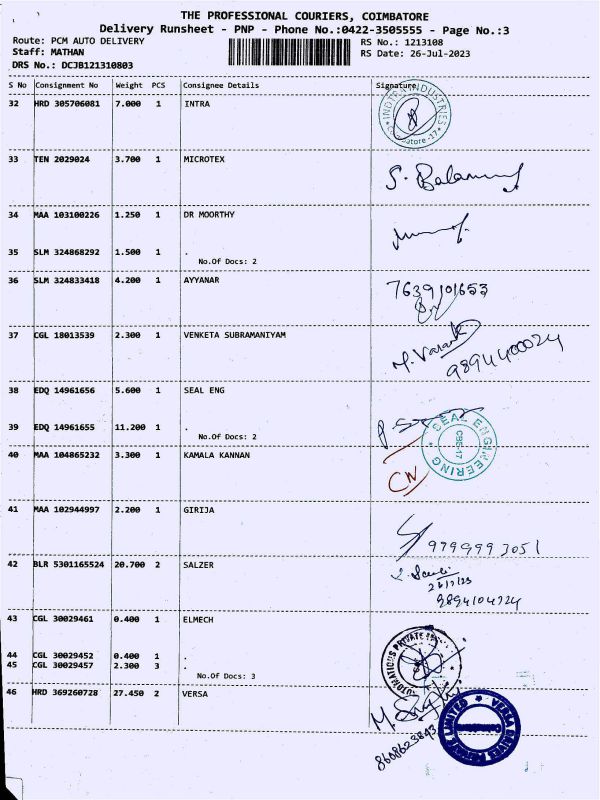 THE PROFESSIONAL COURIERS, COIMBATORE
Delivery Runsheet - PNP - Phone No.:0422-3505555 - Page No.:3
Route: PCM AUTO DELIVERY
RS No.: 1213108
Staff: MATHAN
RS Date: 26-Jul-2023
DRS No.: DCJB121310803
S No Consignment No Weight PCS Consignee Details Signature
32 HRD 305706081 7.000 1 INTRA
INDUSTRIES
33 TEN 2029024 3.700 1 MICROTEX
34 MAA 103100226 1.250 1 DR MOORTHY
35 SLM 324868292 1.500 1 .
No.Of Docs: 2
36 SLM 324833418 4.200 1 AYYANAR
7639101653
37 CGL 18013539 2.300 1 VENKETA SUBRAMANIYAM
9894400024
38 EDQ 14961656 5.600 1 SEAL ENG
39 EDQ 14961655 11.200 1 .
No.Of Docs: 2
SEAL ENGINEERING
CBE-17
40 MAA 104865232 3.300 1 KAMALA KANNAN
CN
41 MAA 102944997 2.200 1 GIRIJA
9799993051
42 BLR 5301165524 20.700 2 SALZER
26/7/23
9894104724
43 CGL 30029461 0.400 1 ELMECH
44 CGL 30029452 0.400 1 .
45 CGL 30029457 2.300 3 .
No.Of Docs: 3
46 HRD 369260728 27.450 2 VERSA
8608623843